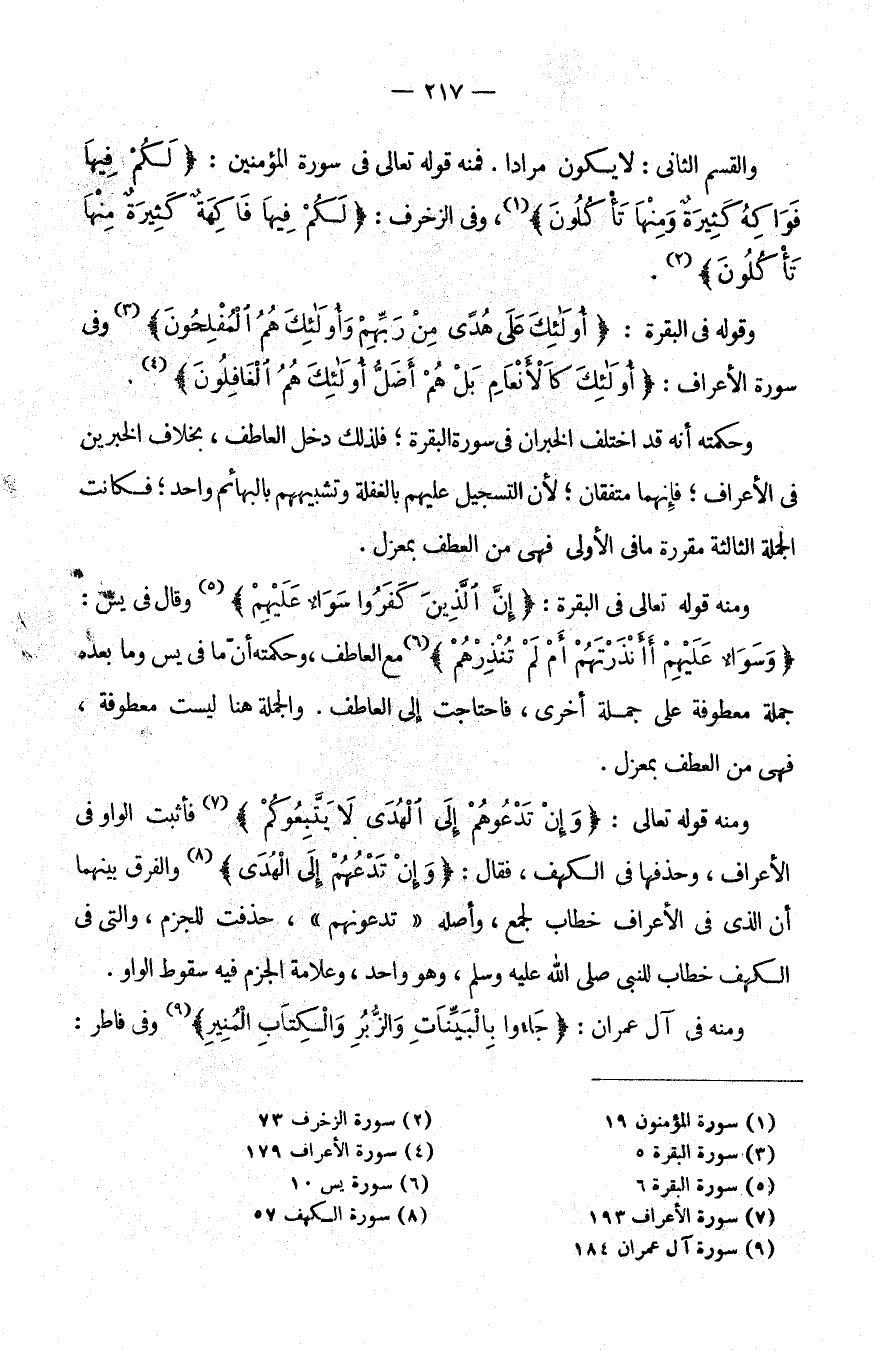 — ٢١٧ —
والقسم الثانى : لايكون مرادا . فمنه قوله تعالى فى سورة المؤمنين : ﴿ لَكُمْ فِيهَا
فَوَاكِهُ كَثِيرَةٌ وَمِنْهَا تَأْكُلُونَ ﴾(١)، وفى الزخرف : ﴿ لَكُمْ فِيهَا فَاكِهَةٌ كَثِيرَةٌ مِنْهَا
تَأْكُلُونَ ﴾(٢) .
وقوله فى البقرة : ﴿ أُولَٰئِكَ عَلَى هُدًى مِنْ رَبِّهِمْ وَأُولَٰئِكَ هُمُ ٱلْمُفْلِحُونَ ﴾(٣) وفى
سورة الأعراف : ﴿ أُولَٰئِكَ كَالْأَنْعَامِ بَلْ هُمْ أَضَلُّ أُولَٰئِكَ هُمُ ٱلْغَافِلُونَ ﴾(٤) .
وحكمته أنه قد اختلف الخبران فى سورة البقرة ؛ فلذلك دخل العاطف ، بخلاف الخبرين
فى الأعراف ؛ فإنهما متفقان ؛ لأن التسجيل عليهم بالغفلة وتشبيههم بالبهائم واحد ؛ فكانت
الجملة الثالثة مقررة مافى الأولى فهى من العطف بمعزل .
ومنه قوله تعالى فى البقرة : ﴿ إِنَّ ٱلَّذِينَ كَفَرُوا سَوَاءٌ عَلَيْهِمْ ﴾(٥) وقال فى يسٓ :
﴿ وَسَوَاءٌ عَلَيْهِمْ أَأَنْذَرْتَهُمْ أَمْ لَمْ تُنْذِرْهُمْ ﴾(٦) مع العاطف ، وحكمته أنّ ما فى يس وما بعده
جملة معطوفة على جملة أخرى ، فاحتاجت إلى العاطف . والجملة هنا ليست معطوفة ،
فهى من العطف بمعزل .
ومنه قوله تعالى : ﴿ وَإِنْ تَدْعُوهُمْ إِلَى ٱلْهُدَى لَا يَتَّبِعُوكُمْ ﴾(٧) فأثبت الواو فى
الأعراف ، وحذفها فى الكهف ، فقال : ﴿ وَإِنْ تَدْعُهُمْ إِلَى الْهُدَى ﴾(٨) والفرق بينهما
أن الذى فى الأعراف خطاب لجمع ، وأصله « تدعونهم » ، حذفت للجزم ، والتى فى
الكهف خطاب للنبى صلى الله عليه وسلم ، وهو واحد ، وعلامة الجزم فيه سقوط الواو .
ومنه فى آل عمران : ﴿ جَاءُوا بِالْبَيِّنَاتِ وَالزُّبُرِ وَالْكِتَابِ الْمُنِيرِ﴾(٩) وفى فاطر :
(١) سورة المؤمنون ١٩
(٢) سورة الزخرف ٧٣
(٣) سورة البقرة ٥
(٤) سورة الأعراف ١٧٩
(٥) سورة البقرة ٦
(٦) سورة يس ١٠
(٧) سورة الأعراف ١٩٣
(٨) سورة الكهف ٥٧
(٩) سورة آل عمران ١٨٤